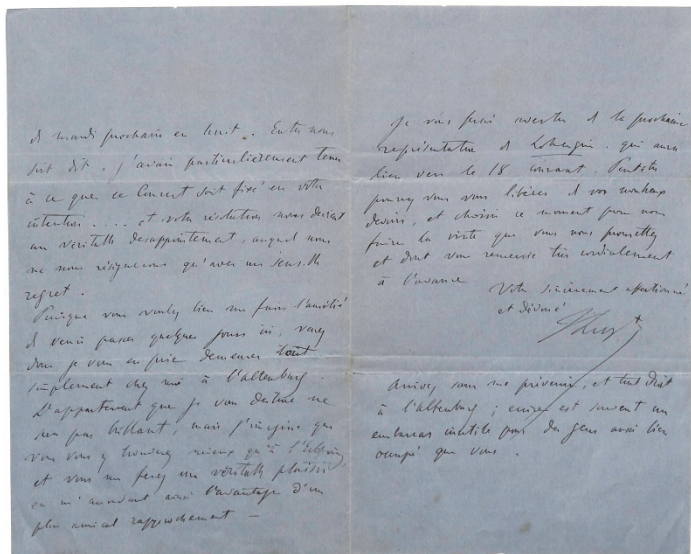 de mardi prochain en huit. Entre nous
soit dit, j'avais particulièrement tenu
à ce que ce Concert soit fixé en votre
intention . . . et votre résolution nous devient
un véritable désappointement, auquel nous
ne nous résignerons qu'avec un sensible
regret.
Puisque vous voulez bien me faire l'amitié
de venir passer quelques jours ici, venez
donc je vous en prie demeurer tout
simplement chez moi à l'altenburg.
L'appartement que je vous destine ne
sera pas brillant, mais j'imagine que
vous vous y trouverez mieux qu'à l'Erbprinz,
et vous me ferez un véritable plaisir
en m'accordant ainsi l'avantage d'un
plus amical rapprochement —
Je vous ferai avertir de la prochaine
représentation de Lohengrin qui aura
lieu vers le 18 courant. Peut-être
pourrez vous vous libérer de vos nombreux
devoirs, et choisir ce moment pour nous
faire la visite que vous nous promettez
et dont vous remercie très cordialement
à l'avance
Votre sincèrement affectionné
et dévoué
FLiszt
Arrivez sans me prévenir, et tout droit
à l'altenburg; écrire est souvent un
embarras inutile pour des gens aussi bien
occupés que vous.